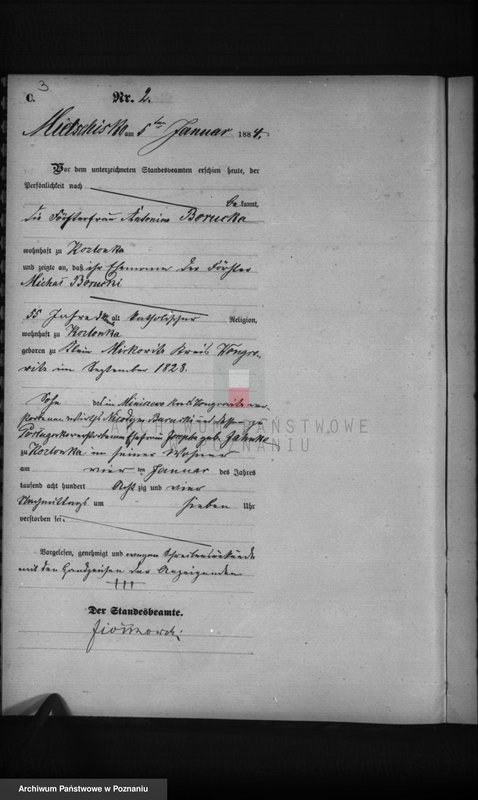 3
C. Nr. 2.
Mietschisko am 5ten Januar 1884.
Vor dem unterzeichneten Standesbeamten erschien heute, der
Persönlichkeit nach
bekannt,
die Försterfrau Antonina Borucka
wohnhaft zu Kozlonka
und zeigte an, daß ihr Ehemann der Förster
Michał Borucki
55 Jahre alt katholischer Religion,
wohnhaft zu Kozlonka
geboren zu Klein Mirkowitz Kreis Wongro-
witz im September 1828.
Sohn des in Kreis Wongrowitz ver-
storbenen Wirths Borucki und dessen zu
verstorbenen Ehefrau Josepha geb. Jahnke
zu Kozlonka in seiner Wohnung
am vier ten Januar des Jahres
tausend acht hundert Acht zig und vier
Nachmittags um sieben Uhr
verstorben sei.
Vorgelesen, genehmigt und wegen Schreibensunkunde
mit den Handzeichen der Anzeigenden
+++
Der Standesbeamte.
ARCHIWUM PAŃSTWOWE
W POZNANIU
Archiwum Państwowe w Poznaniu